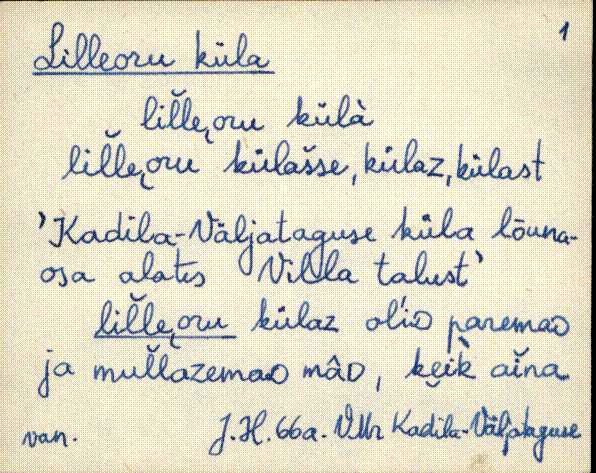 1
Lilleoru küla
lil̆l̆e̮oru külà
lil̆l̆e̮oru külašse, külaz, külast
'Kadila-Väljataguse küla lõuna-
osa alates Villa talust'
lil̆l̆e̮oru külaz olìᴅ paremaᴅ
ja mul̆l̆azemaᴅ mâᴅ, kĕ̮ik aĭna
van. J.H. 66a. VMr Kadila-Väljataguse